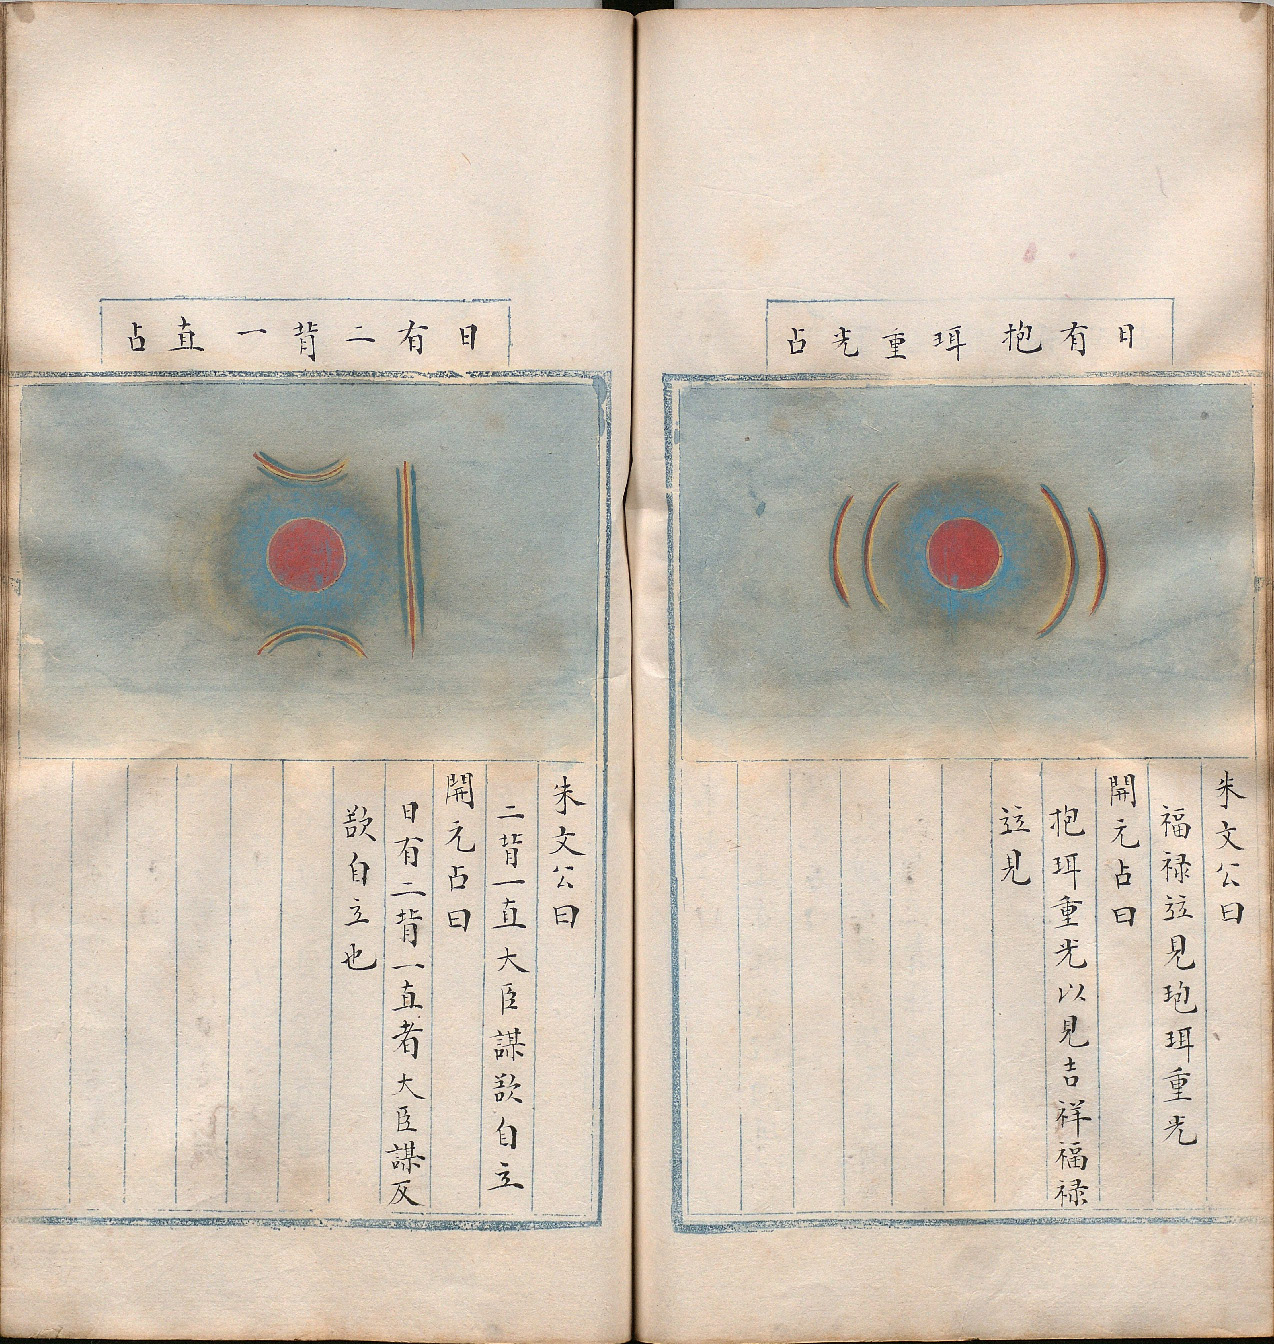 日有抱珥重光占
朱文公曰
福禄並見玸珥重光
開元占曰
抱珥重光以見吉祥福禄
並見
日有二背一直占
朱文公曰
二背一直大臣謀欲自立
開元占曰
日有二背一直者大臣謀反
欲自立也